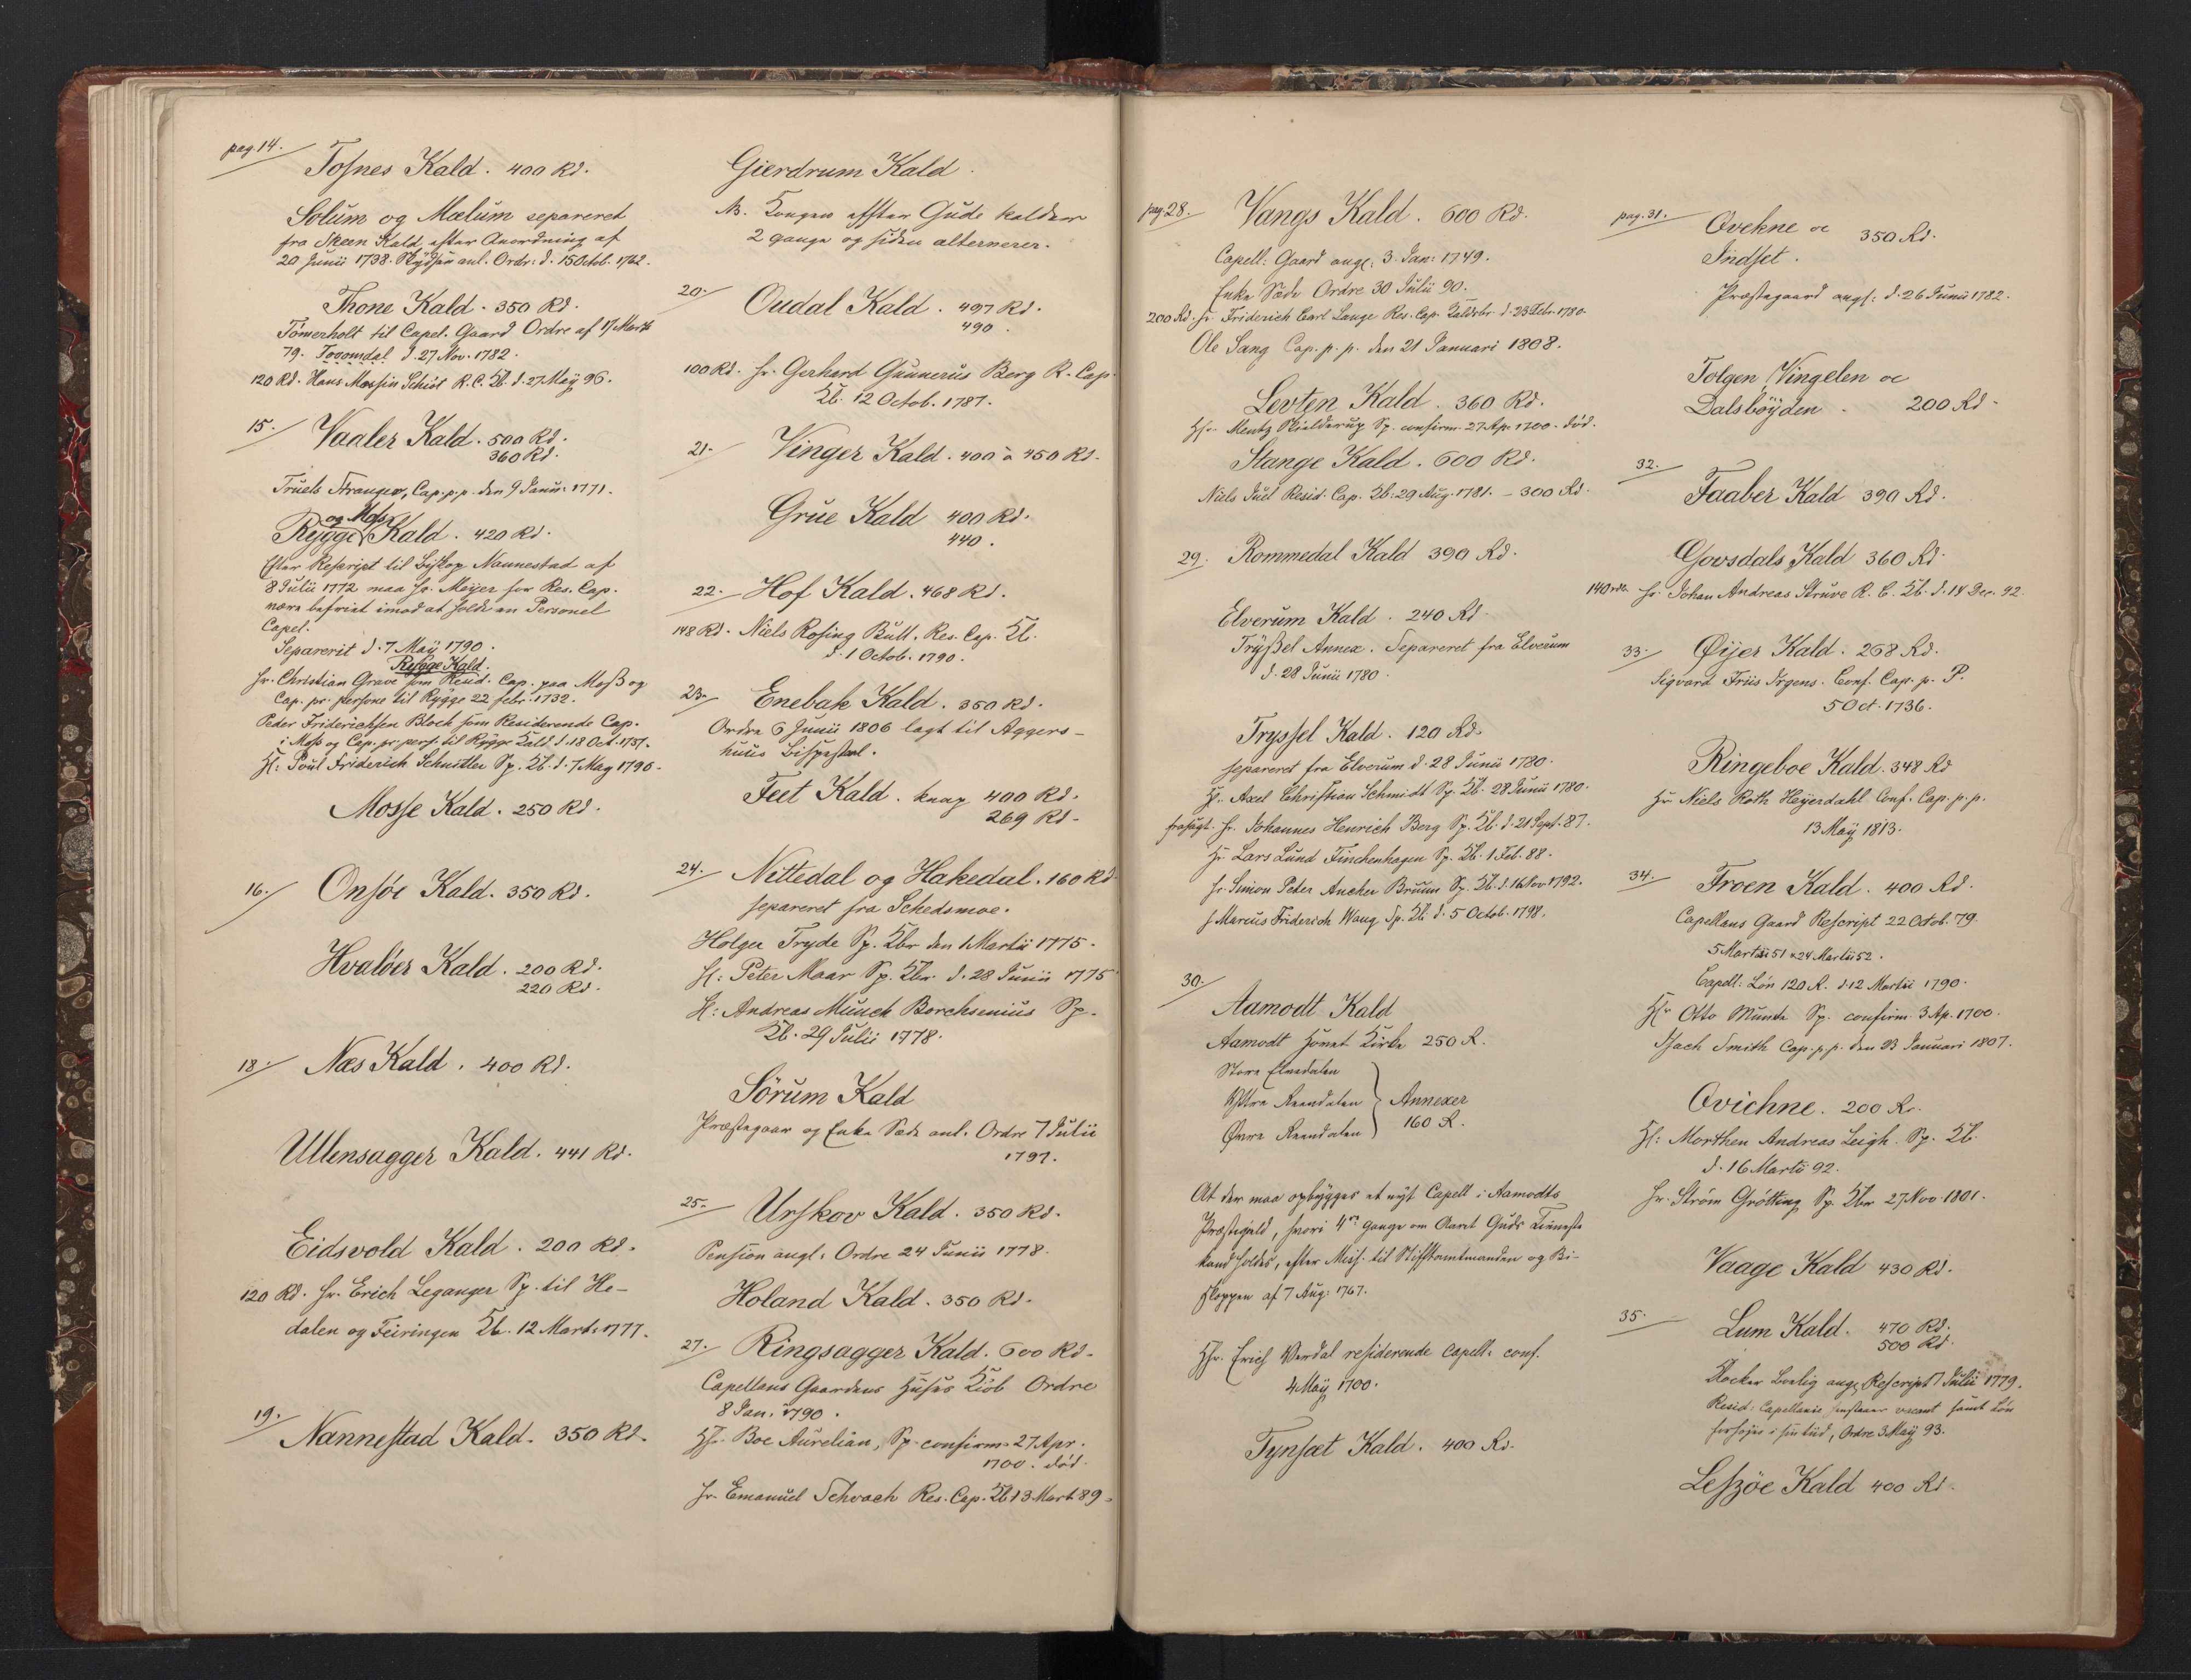 pag. 14.
Tosnes Kald. 400 Rd.
Solum og Mælum separeret
fra Skeen Kald efter Anordning af
20 Junii 1738. Skydsen anl. Ordr: d. 15 Octob. 1762.
Thone Kald. 350 Rd.
Tömerholt til Capel. Gaard Ordre af 17 Marts
79. Tovomdal d. 27 Nov. 1782.
120 Rd. Hans Morsin Schiöt R. C. Kb. d. 27 May 96.
15. Vaaler Kald. 500 Rd.
360 Rd.
Truels Stranger, Cap. p. p. den 9 Janu: 1771.
og Moss
Rygge Kald. 420 Rd.
Efter Rescript til Biskop Nannestad af
8 Julii 1772 maa Hr. Meyer som Res. Cap.
være befriet imod at holde en Personel
Capel.
Separerit d. 7 Maÿ 1790.
Rygge Kald.
Hr. Christian Grave som Resid. Cap. paa Moss og
Cap. pr. persone til Rÿgge 22 febr. 1732.
Peder Friderichsen Bloch som Residerende Cap.
i Moss og Cap. pr. pers. til Rÿgge Kald d. 18 Oct. 1737.
H: Poul Friderich Schnitler Sp. Kb. d. 7 May 1790.
Mosse Kald. 250 Rd.
16. Onsöe Kald. 350 Rd.
Hvalöer Kald. 200 Rd.
220 Rd.
18. Næs Kald. 400 Rd.
Ullensagger Kald. 441 Rd.
Eidsvold Kald. 200 Rd.
120 Rd. Hr. Erich Leganger Sp. til He-
dalen og Feiringen Kb. 12 Mart. 1777.
19. Nannestad Kald. 350 Rd.
Gierdrum Kald.
NB. Kongen efter Gude kalder
2 gange og siden alternerer.
20. Oudal Kald. 497 Rd.
490.
100 Rd. Hr. Gerhard Gunnerus Berg R. Cap.
Kb. 12 Octob. 1787.
21. Vinger Kald. 400 à 450 Rd.
Grue Kald 400 Rd.
440.
22. Hof Kald. 468 Rd.
148 Rd. Niels Rosing Bull. Res. Cap. Kb.
d. 1 Octob. 1790.
23. Enebak Kald. 350 Rd.
Ordre 6 Junii 1806 lagt til Aggers-
huus Bispestol.
Feet Kald. knap 400 Rd.
269 Rd.
24. Nittedal og Hakedal. 160 Rd
separeret fra Schedsmoe.
Holger Tryde Sp. Kbr den 1 Martii 1775.
H: Peter Maar Sp. Kbr. d. 28 Junii 1775
H: Andreas Munch Borchsenius Sp.
Kb. 29 Julii 1778.
Sörum Kald
Præstegaar og Enke Sæde anl. Ordre 7 Julii
1797.
25. Urskov Kald. 350 Rd.
Pension angl. Ordre 24 Junii 1778.
Holand Kald. 350 Rd.
27. Ringsagger Kald. 600 Rd.
Capellans Gaardens Huses Kiöb Ordre
8 Jan. 1790.
Hr. Boe Aurelian, Sp. confirm. 27 Apr.
1700. död.
Hr. Emanuel Schvach Res. Cap. Kb 13 Mart. 89.
pag. 28. Vangs Kald. 600 Rd.
Capell: Gaard ang: 3 Jan: 1749.
Enke Sæde Ordre 30 Julii 90.
200 Rd. Hr. Friderich Carl Lange Res. Cap. Kaldsbr. d. 23 Febr. 1780.
Ole Sang Cap. p. p. den 21 Januari 1808.
Levten Kald. 360 Rd.
Hr. Mentz Skielderup Sp. confirm. 27 Ap. 1700. död.
Stange Kald. 600 Rd.
Niels Juel Resid. Cap. Kb. 29 Aug. 1781. – 300 Rd.
29. Rommedal Kald 390 Rd.
Elverum Kald. 240 Rd.
Trÿssel Annex. Separeret fra Elverum
d. 28 Junii 1780.
Tryssel Kald. 120 Rd.
separeret fra Elverum d. 28 Junii 1780.
H. Axel Christian Schmidt Sp. Kb. 28 Junii 1780.
frasagt. Hr. Johannes Henrich Berg Sp. Kb. d. 21 Sept. 87.
Hr. Lars Lund Finckenhagen Sp. Kb. 1 Feb. 88.
Hr. Simon Peter Ancher Bruun Sp. Kb. d. 16 Nov 1792.
H. Marcus Friderich Wang Sp. Kb. d. 5 Octob. 1798.
30. Aamodt Kald
Aamodt Hovet Kirke 250 R.
Store Elvedalen
Yttre Reendalen } Annexer
Övre Reendalen 160 R.
At der maa opbygges et nyt Capell i Aamodts
Præstegield, hvori 4re gange om Aaret Guds Tieneste
kand holdes, efter Miss. til Stiftsamtmanden og Bi-
skoppen af 7 Aug: 1767.
Hr. Erich Verdal residerende Capell. conf.
4 Maÿ 1700.
Tynsæt Kald. 400 Rd.
pag. 31. Qvekne oc 350 Rd.
Indset.
Præstegaard angl: d. 26 Junii 1782.
Tolgen, Vingelen oc
Dalsböÿden. 200 Rd.
32. Faaber Kald 390 Rd.
Govsdals Kald 360 Rd
140 rdr. Hr. Johan Andreas Struve R. C. Kb. d. 14 Dec. 92.
33. Öijer Kald. 268 Rd.
Sigvard Friis Irgens. Conf. Cap. p. P.
5 Oct. 1736.
Ringeboe Kald. 348 Rd
Hr Niels Roth Heyerdahl Conf. Cap. p. p.
13 Maÿ 1813.
34. Froen Kald. 400 Rd.
Capellans Gaard Rescript 22 Octob. 79.
5 Martii 51 & 24 Martii 52.
Capell: Lön 120 R. d. 12 Martii 1790.
Hr Otto Munth Sp. confirm. 3 Ap. 1700.
Isach Smith Cap. p. p. den 23 Januari 1807.
Qvichne. 200 Rd.
H: Morthen Andreas Leigh. Sp. Kb.
d. 16 Marti 92.
Hr. Ström Grötting Sp. Kbr 27 Nov 1801.
Vaage Kald 430 Rd.
35. Lum Kald. 470 Rd.
500 Rd.
Klocker Boelig ang. Rescript 7 Julii 1779.
Resid: Capellanie henstaaer vacant samt Lön
forhöjes i sin tid, Ordre 3 Maÿ 93.
Leszöe Kald 400 Rd.